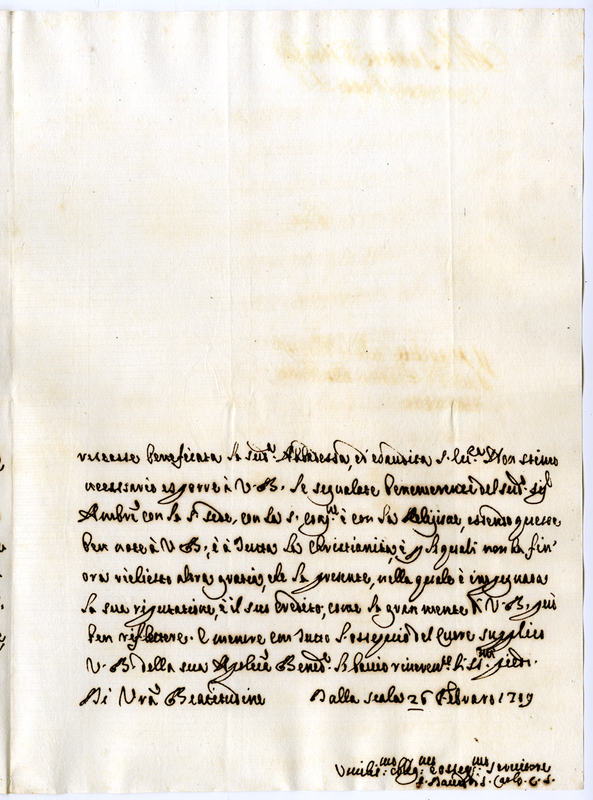 restasse beneficata la sud.ᵃ Abbadessa, ed esaudita Non stimo
necessario esporre à V. B. le segnalate benemerenze del sud.º Sig.
Ambr.ʳ con la S. Sede, con la S. Cong.ⁿᵉ è con la Religione, essendo queste
ben note à V. B., è à tutta la Christianità, è p le quali non hà fin'
ora richiesto altra grazia, che la p̱resente, nella quale è impegnata
la sua riputazione, è il suo credito, come la gran mente di V. B. può
ben riflettere. E mentre con tutto l'ossequio del Cuore supplico
V. B. della sua Ap̱lica Bened.ᵉ le bacio riverent.ᵉ li SS.ᵐⁱ piedi.
Di V̄ra Beatitudine Dalla Scala 26 Febraro 1719
Umilis.ᵐᵒ Oblig.ᵐᵒ è osseq.ᵐᵒ servitore
C. S.